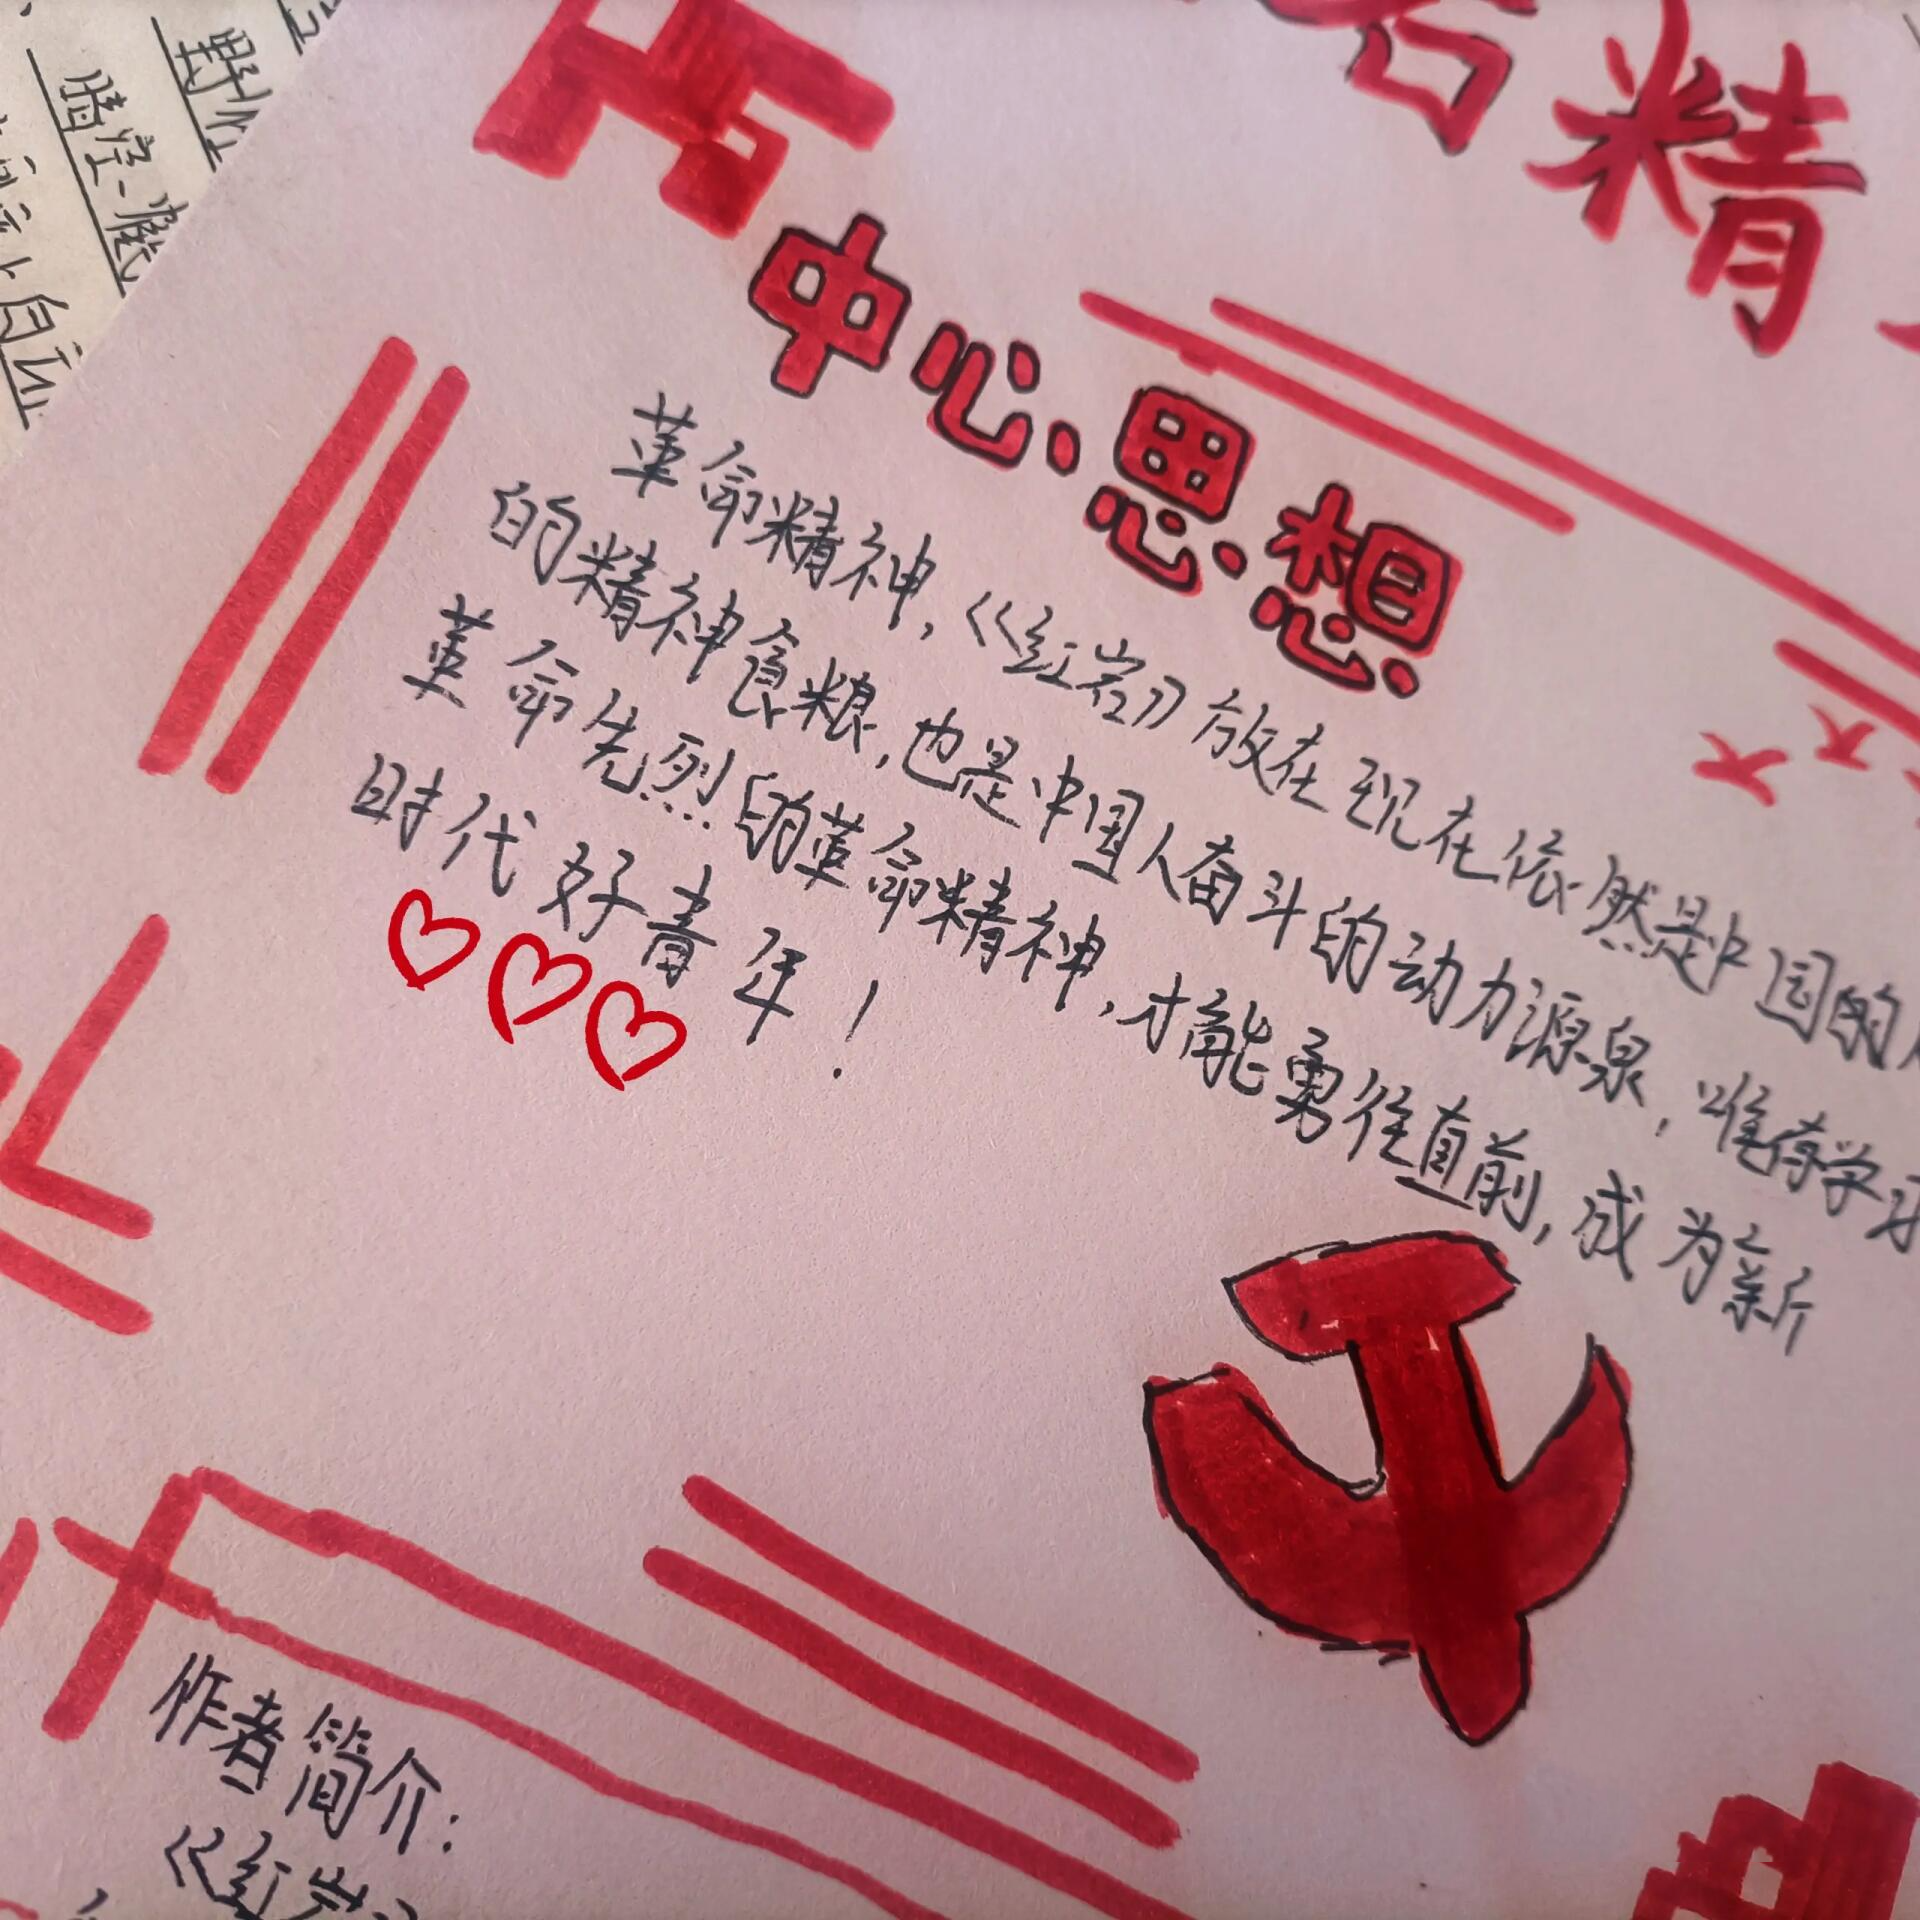 岩精
中心思想
革命精神,《红岩》放在现在依然是中国的
的精神食粮,也是中国人奋斗的动力源泉,唯有学习
革命先烈的革命精神,才能勇往直前,成为新
时代好青年!
作者简介:
《红岩》